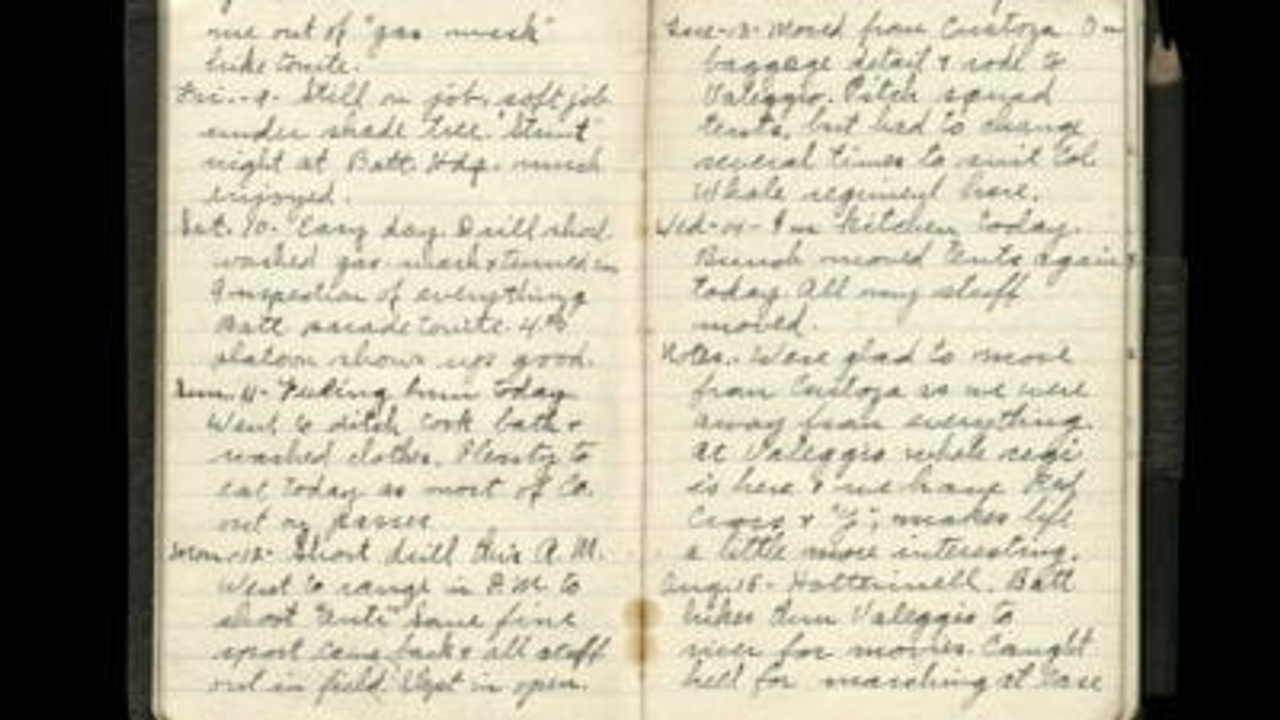 me out of "gas mask"
hike tonite.
Fri.-9- Still on job, soft job
under shade tree. "Stunt"
night at Batt. Hdq. much
enjoyed.
Sat. 10- Easy day. Drill short.
washed gas mask & turned in
Inspection of everything
Batt parade tonite. 4th
platoon shows up good.
Sun. 11- Feeling bum today
Went to ditch took bath &
washed clothes. Plenty to
eat today as most of Co.
out on passes
Mon.-12- Short drill this A.M.
Went to range in P.M. to
shoot Some fine
sport come back & all stuff
out in field. Slept in open.
Tue-13- Moved from Custoza. On
baggage detail & rode to
Valeggio. Pitch squad
tents, but had to change
several times to suit Col.
Whole regiment here.
Wed-14- In kitchen today.
Bunch moved tents again &
today. All my stuff
moved.
Notes.- Were glad to move
from Custoza as we were
away from everything.
At Valeggio whole regi
is here & we have Red
Cross & "Y"; makes life
a little more interesting.
Aug. 15- Batt
hikes thru Valeggio to
river for movies. Caught
hell for marching at ease